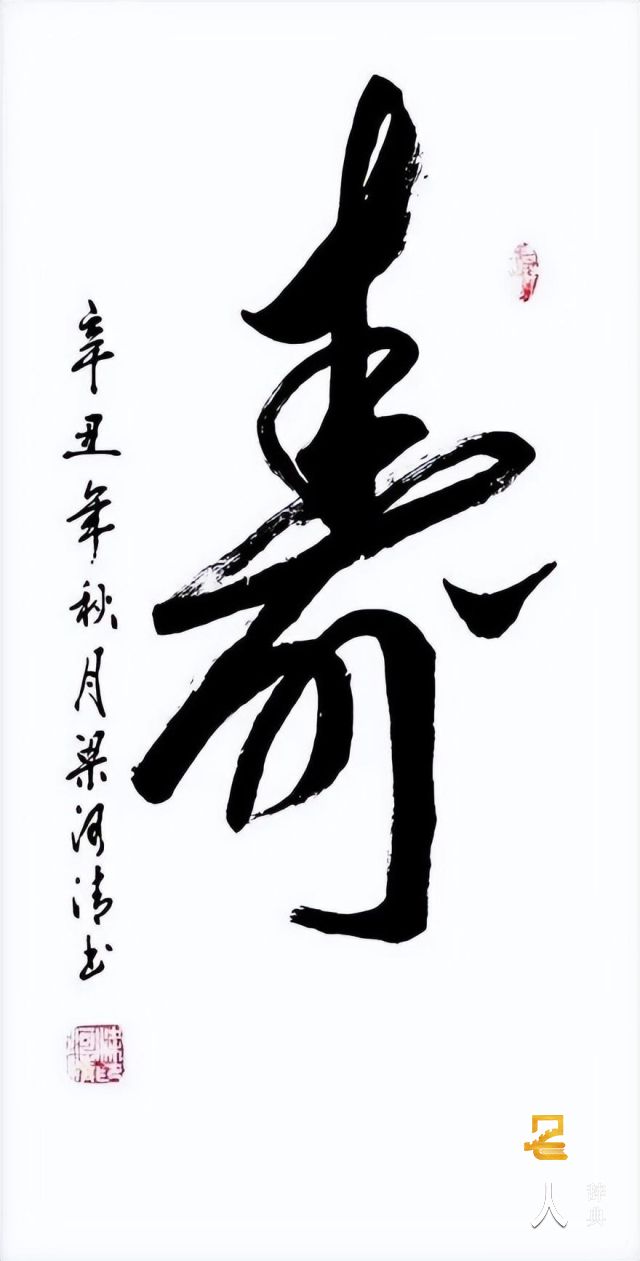 寿
辛丑年秋月梁河清书
名人
辞典